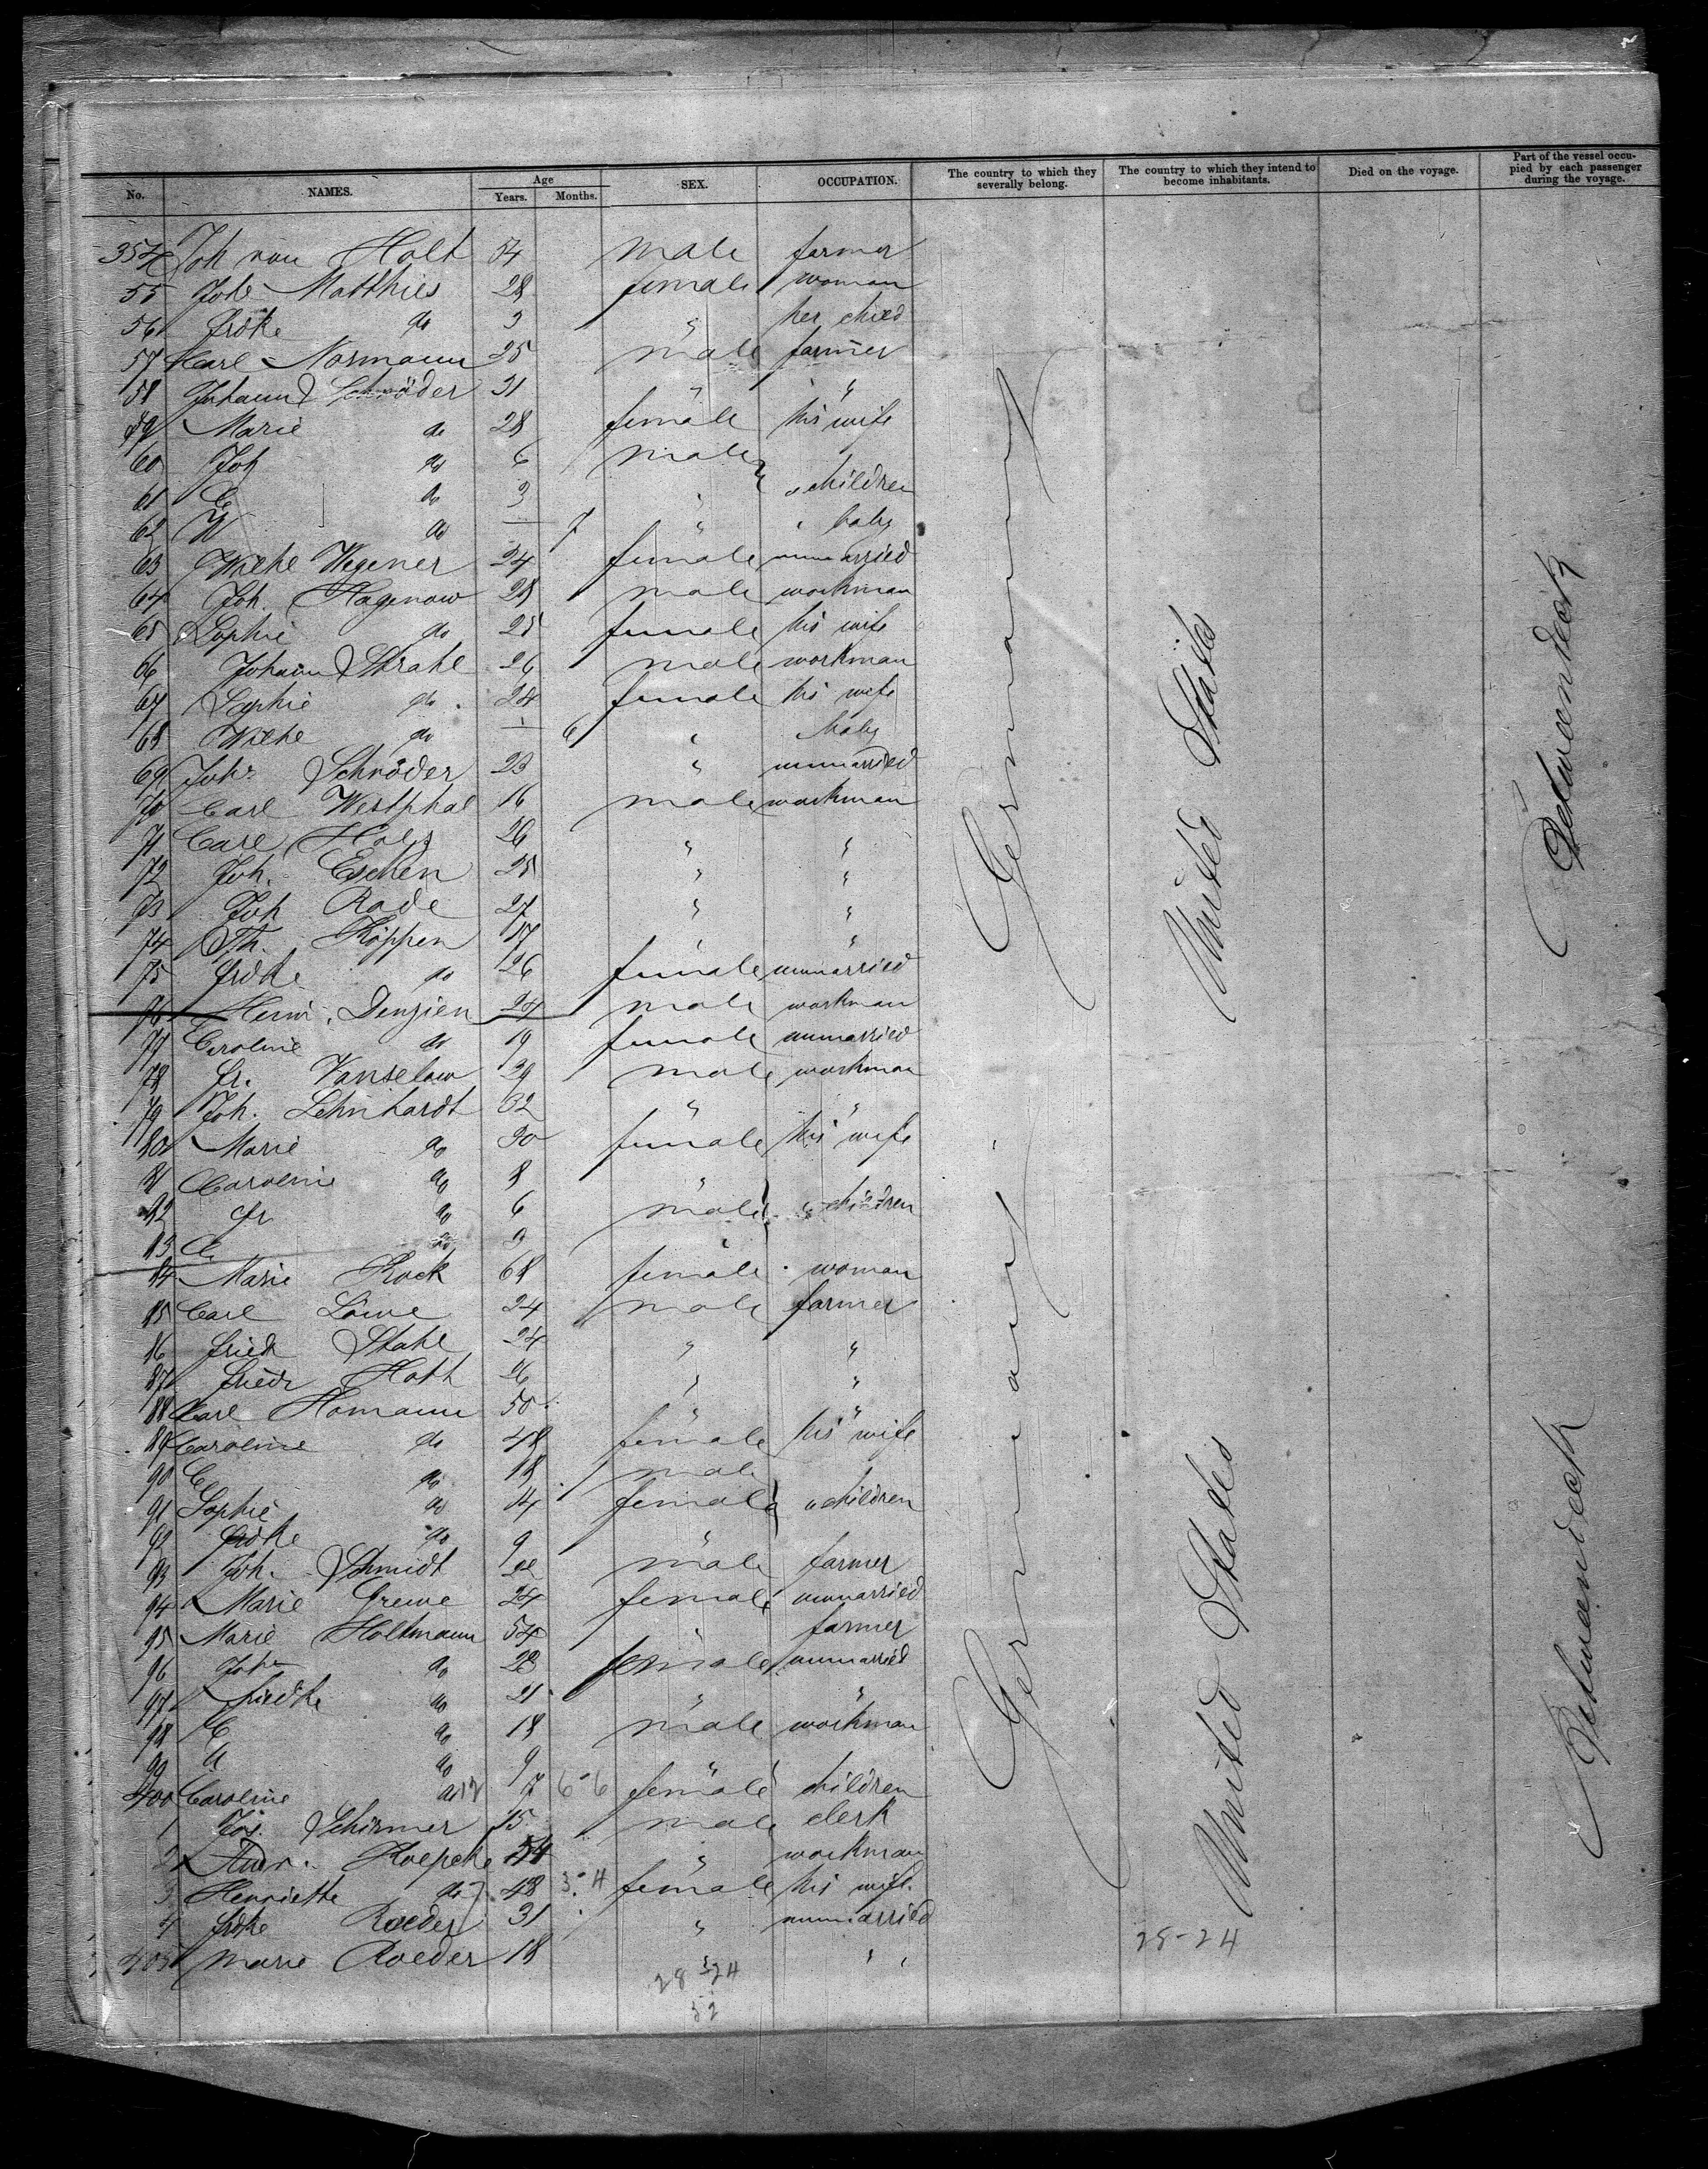 No. NAMES. Age Years. Months. SEX. OCCUPATION. The country to which they severally belong. The country to which they intend to become inhabitants. Died on the voyage. Part of the vessel occupied by each passenger during the voyage.
354 Joh von Holt 54 male farmer
55 Joh Matthies 28 female woman
56 Fridke do 3 " her child
57 Carl Normann 25 male farmer
58 Johann Schröder 31 " "
59 Marie do 28 female his wife
60 Joh do 6 male
61 C do 3 " " children
62 W do — 7 " " baby
63 Wilhe Wegener 24 female unmarried
64 Joh. Hagenow 28 male workman
65 Sophie do 25 female his wife
66 Johann Strahl 26 male workman
67 Sophie do 24 female his wife
68 Wilhe do — 6 " baby
69 Joh Schröder 23 " unmarried
70 Carl Westphal 16 male workman
71 Carl 26 " "
72 Joh. Eschen 25 " "
73 Joh Rade 27 " "
74 Th. Köppen 17 " "
75 Fridke do 26 female unmarried
76 Denzien 24 male workman
77 Caroline do 19 female unmarried
78 Fr. Vanselow 29 male workman
79 Joh. Lehnhardt 32 " "
80 Marie do 30 female his wife
81 Caroline do 8 "
82 Fr do 6 male " children
83 C. do 3 "
84 Marie Kock 68 female woman
85 Carl Löwe 24 male farmer
86 Fried Stahl 24 " "
87 Friedr Hott 26 " "
88 Carl Homann 50 " "
89 Caroline do 48 female his wife
90 C do 18 male
91 Sophie do 14 female " children
92 Fridke do 9 "
93 Joh. Schmidt male farmer
94 Marie Grewe 24 female unmarried
95 Marie Holtmann 54 " farmer
96 Joh do 23 female unmarried
97 Friedke do 21 " "
98 C do 18 male workman
99 do 9 "
400 Caroline do 12 7 6-6 female children
1 Jos. Schirmer 15 male clerk
2 Andr. Koepcke 54 " workman
3 Henriette do 48 3-4 female his wife
4 Fridke Roeder 31 " unmarried
405 Marie Roeder 18 " "
28-24
52
28-24
Germany
Germany
United States
United States
Betweendeck
Betweendeck